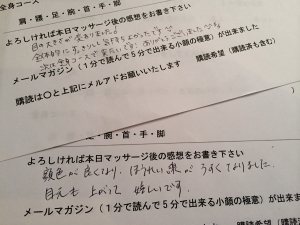 全身コース
肩・腰・足・腕・首・手・脚
よろしければ本日マッサージ後の感想をお書き下さい
目の大きさが変わりました!
全体的にすっきりし気持ち良かったです♡
次は全身コースで来たいです。ありがとうございました
メールマガジン(1分で読んで5分で出来る小顔の極意)が出来ました
購読は○と上記にメルアドお願いいたします 購読希望(購読済も含む)
・腕・首・手・脚
よろしければ本日マッサージ後の感想をお書き下さい
顔色が良くなり、ほうれい線がうすくなりました。
目元も上がって嬉しいです。
メールマガジン(1分で読んで5分で出来る小顔の極意)が出